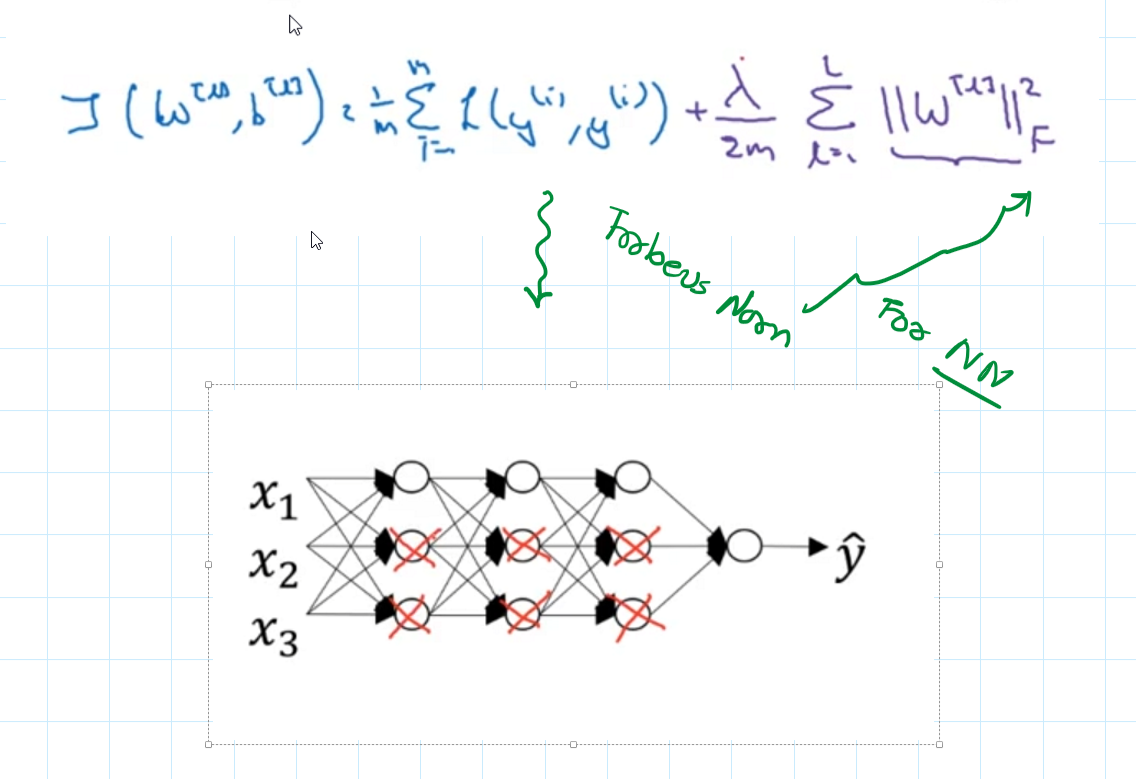 J (W^[l], b^[l]) = 1/m Σ_{i=1}^{m} L(y^(i), y^(i)) + λ/2m Σ_{l=1}^{L} ||W^[l]||²_F
Forbeus Norm
For NN
x₁
x₂
x₃
ŷ